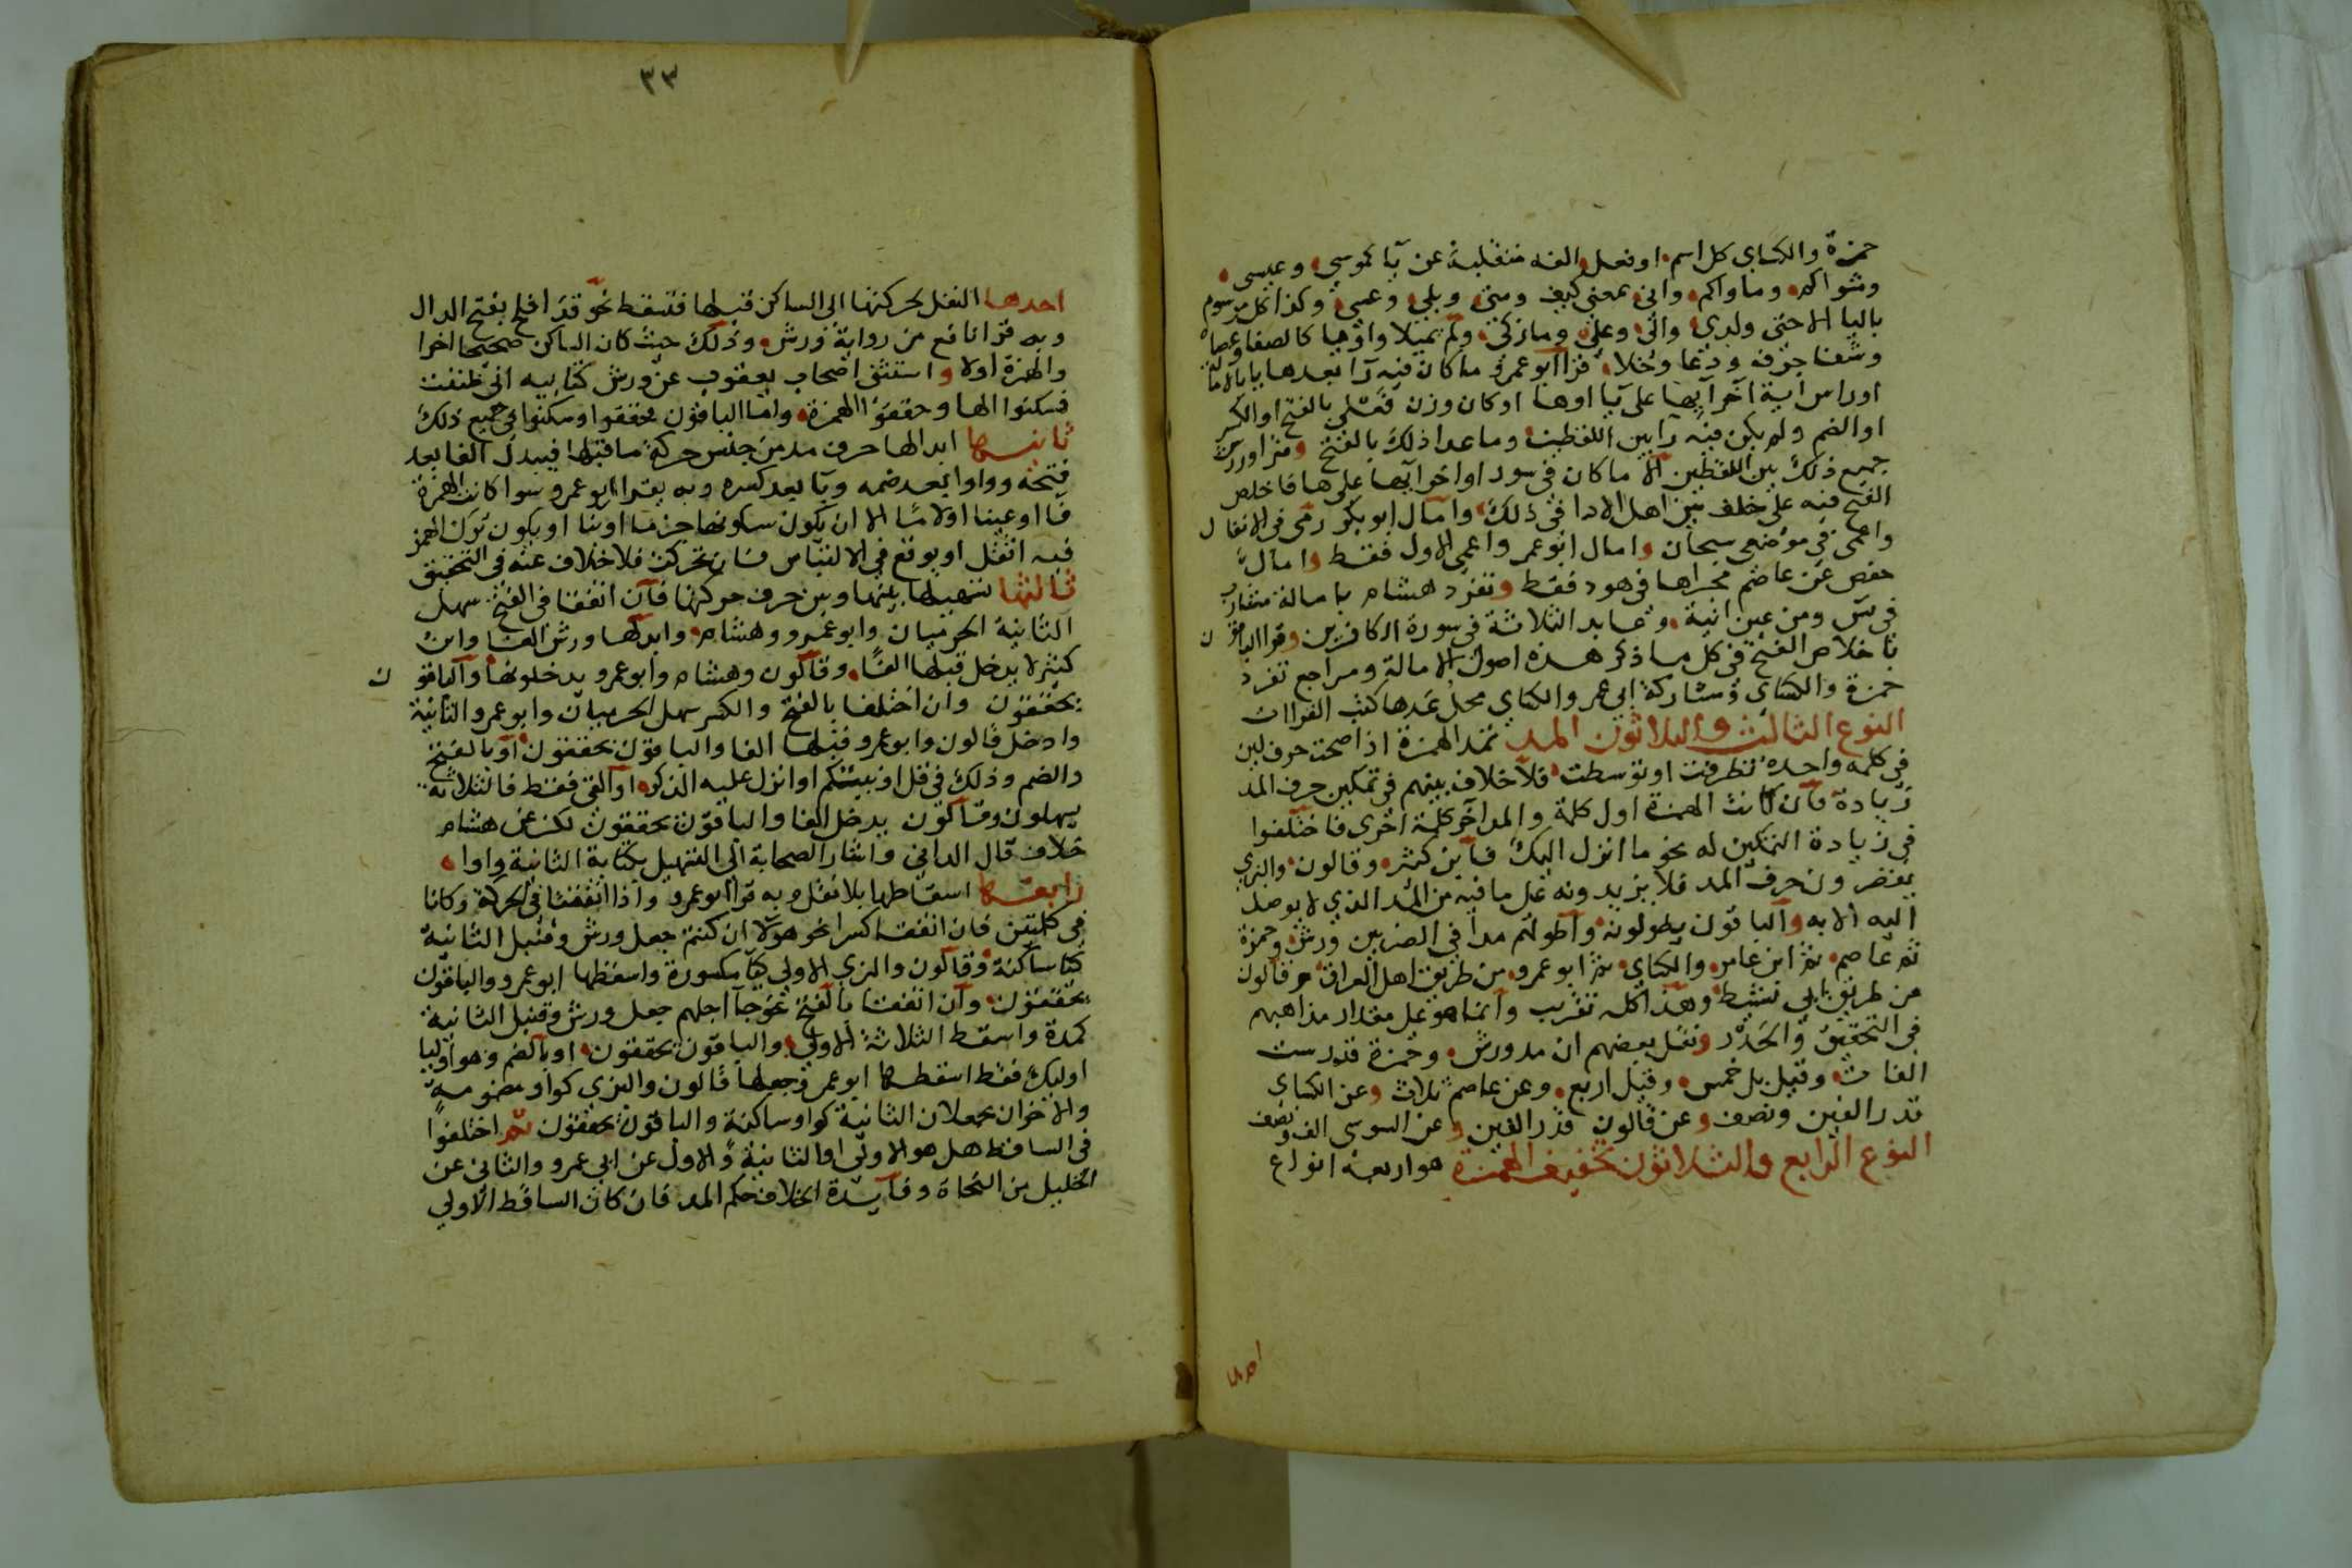 حمزة والكساى كل اسم او فعل الفه منقلبة عن يا كموسى وعيسى
ومثواكم وماواكم وانى بمعنى كيف ومتى وبلى وعسى وكذا كل مرسوم
باليا الا حتى ولدى والى وعلى وما زكى ولم يميلا واويا كالصفا وعصاه
وشفا جرف ودعا وخلا قرا ابو عمرو ما كان فيه را بعدها يا بالامالة
او راس اية اخر ايها على يا او ها او كان وزن فعلى بالفتح او الكسر
او الضم ولم يكن فيه را بين اللفظين وما عدا ذلك بالفتح وقرا ورش
جميع ذلك بين اللفظين الا ما كان فى سور اواخر ايها على ها فاخلص
الفتح فيه على خلف بين اهل الادا فى ذلك وامال ابو بكر رمى فى الانفال
واعمى فى موضعى سبحان وامال ابو عمرو اعمى الاول فقط وامال
حفص عن عاصم مجراها فى هود فقط وتفرد هشام بامالة مشارب
فى يس ومن عين انية وعابد الثلاثة فى سورة الكافرين وقرا الباقون
باخلاص الفتح فى كل ما ذكر هذه اصول الامالة ومراجع تفرد
حمزة والكساى ومشاركة ابى عمر والكساى محل عدها كتب القراات
النوع الثالث والثلاثون المد تمد الهمزة اذا صحت حرف لين
فى كلمه واحده تطرفت او توسطت فلا خلاف بينهم فى تمكين حرف المد
زيادة فان كانت الهمزة اول كلمة والمد اخر كلمة اخرى فاختلفوا
فى زيادة التمكين له نحو ما انزل اليك فابن كثير وقالون والبزى
يقصرون حرف المد فلا يزيدونه على ما فيه من المد الذى لا يوصل
اليه الا به والباقون يطولونه واطولهم مدا فى الضربين ورش وحمزة
ثم عاصم ثم ابن عامر والكساى ثم ابو عمرو من طريق اهل العراق وقالون
من طريق ابى نشيط وهذا كله تقريب وانما هو على مقدار مذاهبهم
فى التحقيق والحدر ونقل بعضهم ان مد ورش وحمزة قدر ست
الفات وقيل بل خمس وقيل اربع وعن عاصم ثلاث وعن الكساى
قدر الفين ونصف وعن قالون قدر الفين وعن السوسى الف ونصف
النوع الرابع والثلاثون تخفيف الهمزة هو اربعة انواع
احدها
٣٣
احدها النقل لحركتها الى الساكن قبلها فتسقط نحو قد افلح بفتح الدال
وبه قرا نافع من رواية ورش وذلك حيث كان الساكن صحيحا اخرا
والهمزة اولا واستثنى اصحاب يعقوب عن ورش كتابيه انى ظننت
فسكنوا الها وحققوا الهمزة واما الباقون فحققوا وسكنوا فى جميع ذلك
ثانيها ابدالها حرف مد من جنس حركة ما قبلها فيبدل الفا بعد
فتحه وواوا بعد ضمه ويا بعد كسره وبه يقرا ابو عمرو سوا كانت الهمزة
فا او عينا او لاما الا ان يكون سكونها جزما او بنا او يكون ترك الهمز
فيه اثقل او يوقع فى الالتباس فان تحركت فلا خلاف عنه فى التحقيق
ثالثها تسهيلها بينها وبين حرف حركتها فان اتفقتا فى الفتح سهل
الثانية الحرميان وابو عمرو وهشام وابدلها ورش الفا وابن
كثير لا يدخل قبلها الفا وقالون وهشام وابو عمرو يدخلونها والباقون
يحققون وان اختلفا بالفتح والكسر سهل الحرميان وابو عمرو الثانية
وادخل قالون وابو عمرو قبلها الفا والباقون يحققون او بالفتح
والضم وذلك فى قل اونبيئكم اوانزل عليه الذكر اوالقى فقط فالثلاثة
يسهلون وقالون يدخل الفا والباقون يحققون لكن عن هشام
خلاف قال الدانى واشار الصحابة الى التسهيل بكتابة الثانية واوا
رابعها اسقاطها بلا نقل وبه قرا ابو عمرو واذا اتفقتا فى الحركة وكانا
فى كلمتين فان اتفقتا كسرا نحو هولا ان كنتم جعل ورش وقنبل الثانية
كيا ساكنة وقالون والبزى الاولى كيا مكسورة واسقطها ابو عمرو والباقون
يحققون وان اتفقتا بالفتح نحو جآ اجلهم جعل ورش وقنبل الثانية
كمدة واسقط الثلاثة الاولى والباقون يحققون او بالضم وهو اوليا
اوليك فقط اسقطها ابو عمر وجعلها قالون والبزى كواو مضمومه
والاخران يجعلان الثانية كواو ساكنة والباقون يحققون ثم اختلفوا
فى الساقط هل هو الاولى او الثانية والاول عن ابى عمرو والثانى عن
الخليل من النحاة وفايدة الخلاف حكم المد فان كان الساقط الاولى